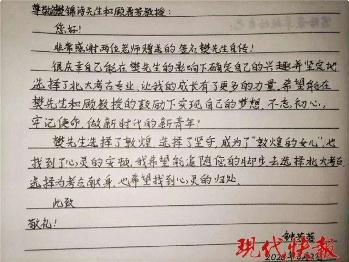 尊敬的樊锦诗先生和顾春芳教授：
您好！
非常感谢两位老师赠送的签名樊先生自传！
很庆幸自己能在樊先生的影响下确定自己的兴趣并坚定地
选择了北大考古专业，让我的成长有了更多的力量，希望能在
樊先生和顾教授的鼓励下实现自己的梦想，不忘初心，
牢记使命，做新时代的新青年！
樊先生选择了敦煌，选择了坚守，成为了“敦煌的女儿”，也
找到了心灵的安顿，我希望能追随您的脚步去选择北大考古，
选择为考古献身，也希望找到心灵的归处。
此致
敬礼！
钟芳蓉
现代快报